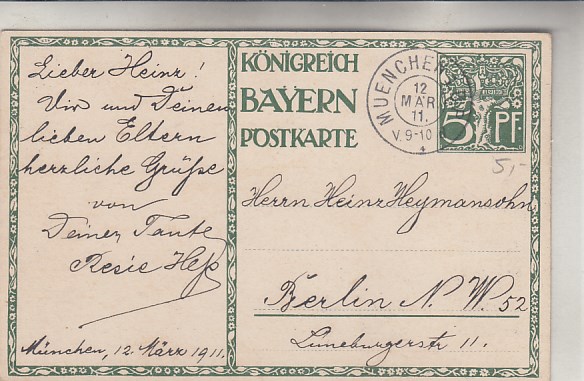 Lieber Heinz!
Dir und Deinen
lieben Eltern
herzliche Grüße
von
Deiner Tante
Resie Heß
München, 12. März 1911.
KÖNIGREICH
BAYERN
POSTKARTE
MUENCHEN
12
MÄR
11.
V. 9-10
5 PF.
5,-
Herrn Heinz Heymansohn
Berlin N. W. 52
Lüneburgerstr 11.